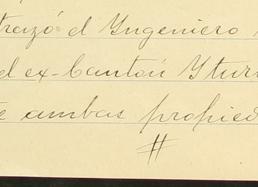 trazó el Ingeniero
el ex-Cantón Ytur
e ambas propied
#